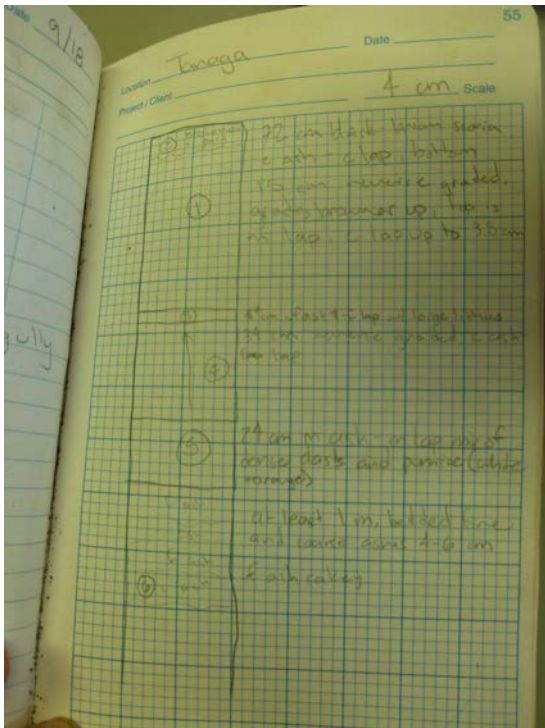 Date
9/18
gully
55
Location Tanaga
Date
Project / Client
4 cm Scale
1
72 cm black-brown scoria
c ash - c lap, bottom
15 cm reverse graded,
grades browner up, top is
m lap, c lap up to 3.5 cm
c lap w/ large lithics
34 cm reverse graded c ash
lap
4
5
24 cm m ash - m lap mix of
dense clasts and pumice (white
orange)
f ash
at least 1 m, bedded fine
and coarse ashes 4-6 cm
f ash
6
f ash cakey